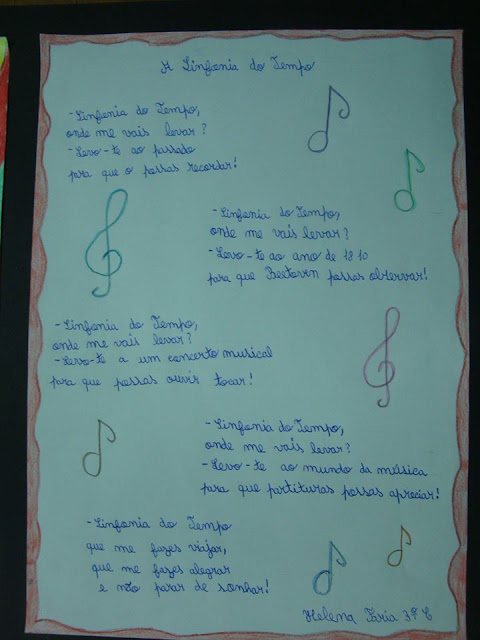 A Sinfonia do Tempo
- Sinfonia do Tempo,
onde me vais levar?
- Levo-te ao passado
para que o possas recordar!
- Sinfonia do Tempo,
onde me vais levar?
- Levo-te ao ano de 1810
para que Beetovn possas observar!
- Sinfonia do Tempo,
onde me vais levar?
- Levo-te a um concerto musical
para que possas ouvir tocar!
- Sinfonia do Tempo,
onde me vais levar?
- Levo-te ao mundo da música
para que partituras possas apreciar!
- Sinfonia do Tempo
que me fazes viajar,
que me fazes alegrar
e não parar de sonhar!
Helena Faria 3º C